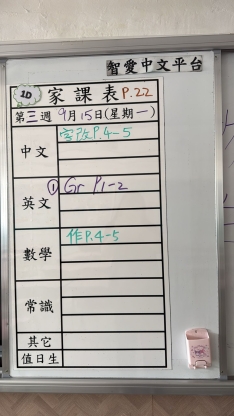 智愛中文平台
1D 家課表 P.22
第三週 9月15日(星期一)
中文 寫改P.4-5
英文 ① Gr P1-2
數學 作P.4-5
常識
其它
值日生